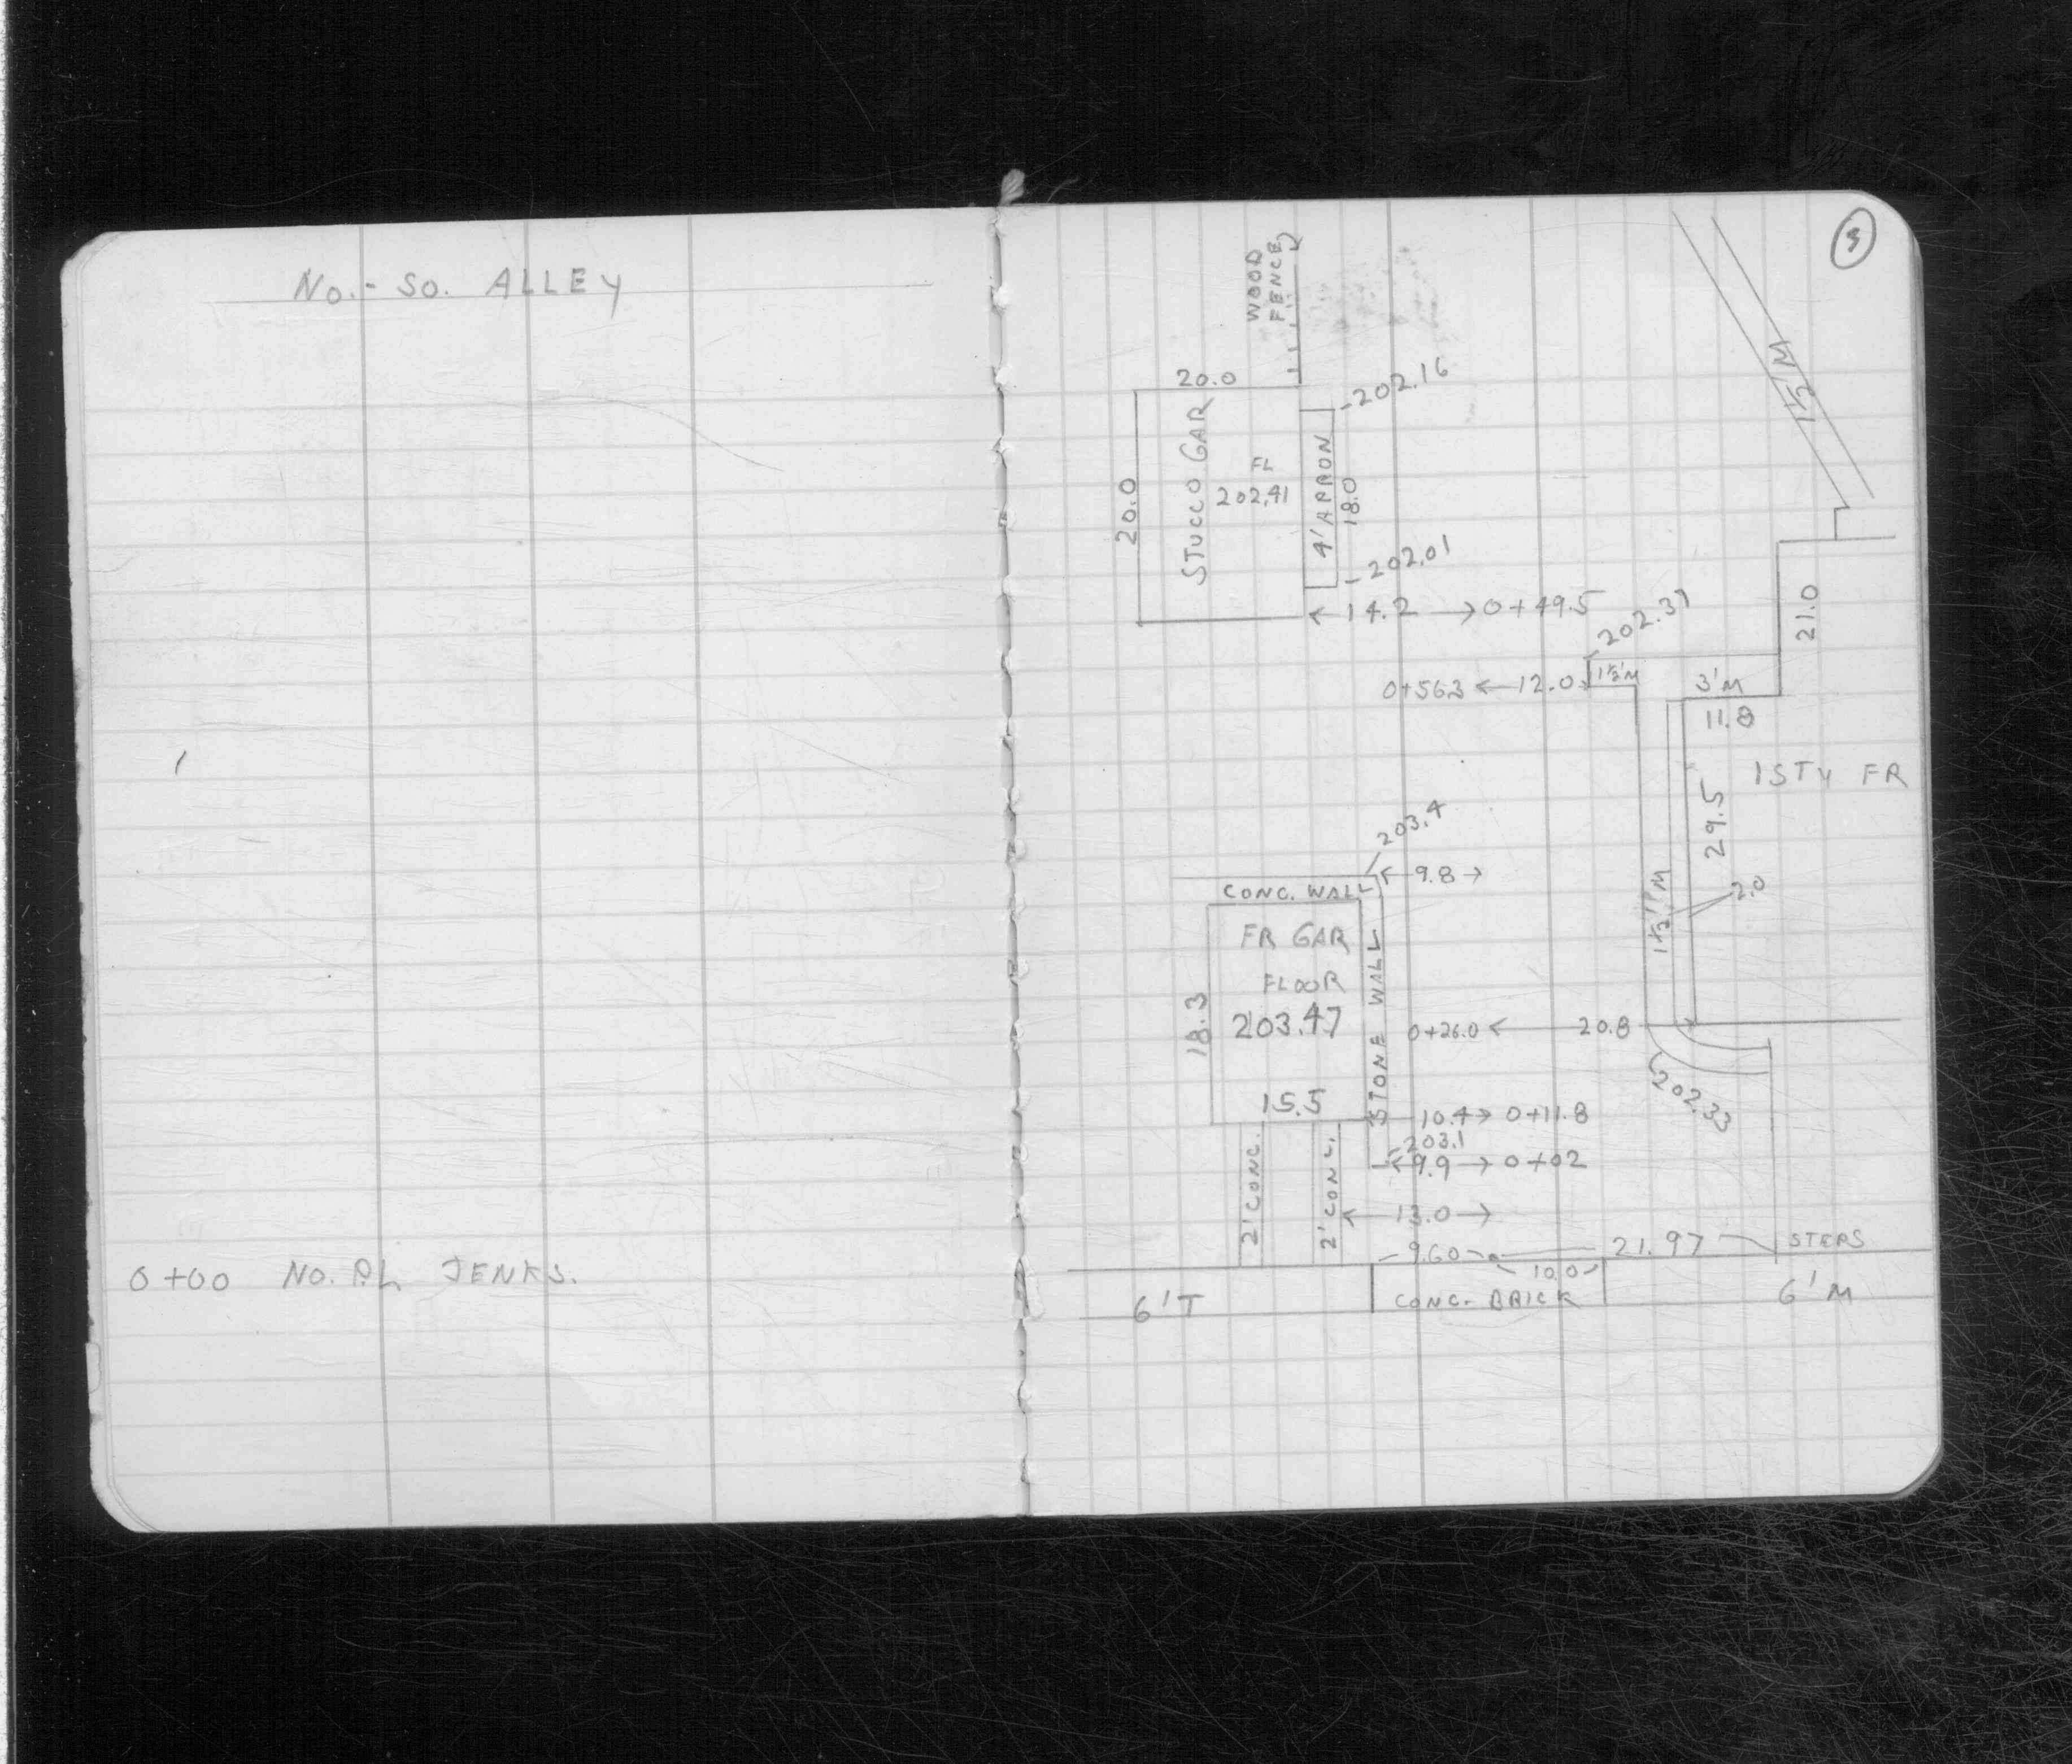 No.- So. ALLEY
0+00 No. P.L JENKS.
3
WOOD
FENCE
1½'M
20.0
202.16
20.0
STUCCO GAR
FL
202.41
4' APRON
18.0
202.01
14.2 0+49.5
202.31
21.0
0+56.3 12.0
1½'M
3'M
11.8
1 STY FR
29.5
203.4
9.8
CONC. WALL
2.0
1½'M
FR GAR
FLOOR
203.47
18.3
STONE WALL
0+26.0 20.8
202.33
15.5
10.4 0+11.8
203.1
9.9 0+02
2' CONC.
2' CONC.
13.0
9.60
21.97
STEPS
10.0
6'T
CONC. BRICK
6'M